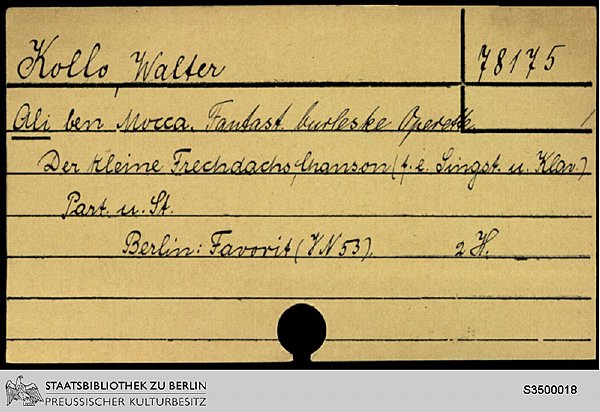 Kollo, Walter 78175
Ali ben Mocca. Fantast. burleske Operette.
Der kleine Frechdachs, Chanson (f. e. Singst. u. Klav.)
Part. u. St.
Berlin: Favorit (VN 53). 2 H.
STAATSBIBLIOTHEK ZU BERLIN
PREUSSISCHER KULTURBESITZ
S3500018